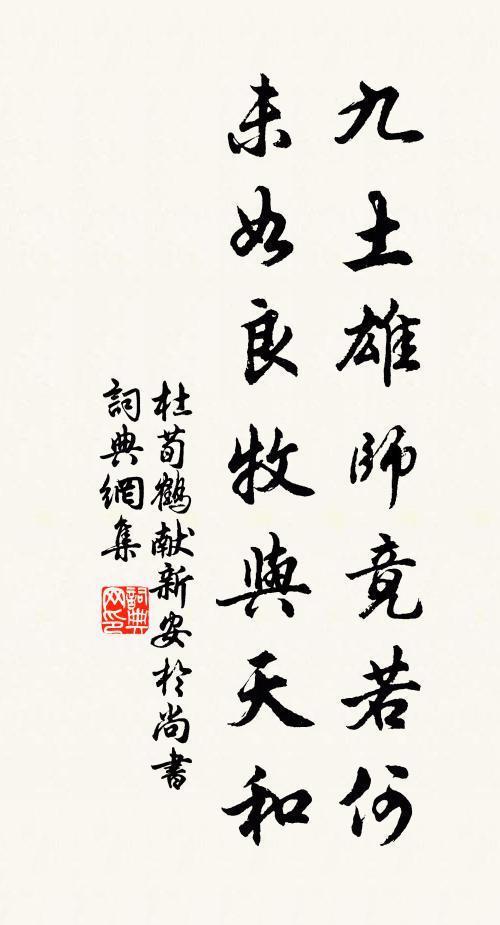 九土雄師竟若何
未如良牧與天和
杜荀鶴献新安於尚書
詞典網集
詞典网印